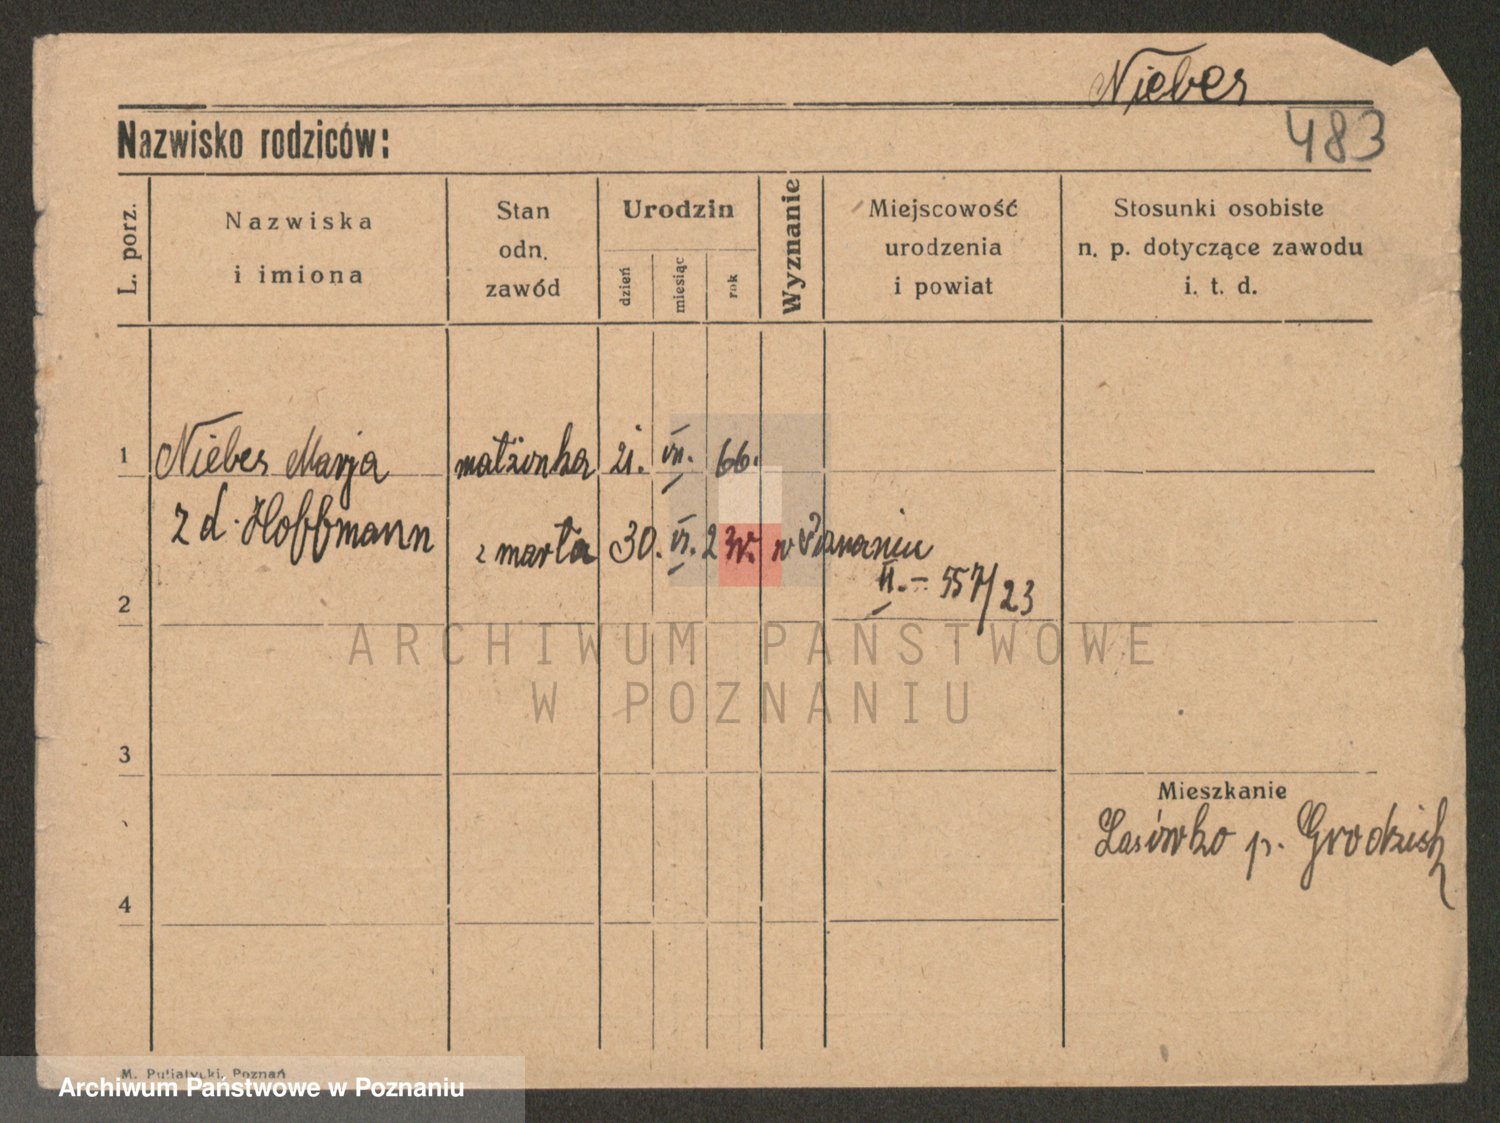 Niebes
483
Nazwisko rodziców:
L. porz.
Nazwiska
i imiona
Stan
odn.
zawód
Urodzin
dzień
miesiąc
rok
Wyznanie
Miejscowość
urodzenia
i powiat
Stosunki osobiste
n. p. dotyczące zawodu
i. t. d.
1 Niebes Marja małżonka 21. VII. 66.
z d. Hoffmann
zmarła 30. VI. 23 r. w Poznaniu
II. – 557/23
2
ARCHIWUM PAŃSTWOWE
W POZNANIU
3
Mieszkanie
Lasówko p. Grodzisk
4
M. Putiatycki, Poznań
Archiwum Państwowe w Poznaniu